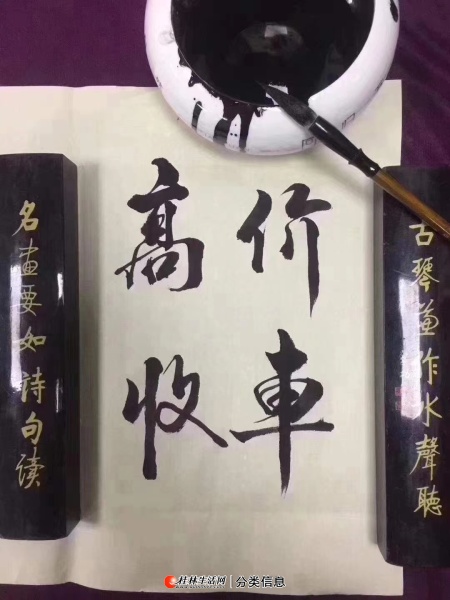 高价
收車
名畫要如詩句读
古琴兼作水聲聽
桂林生活网 分类信息